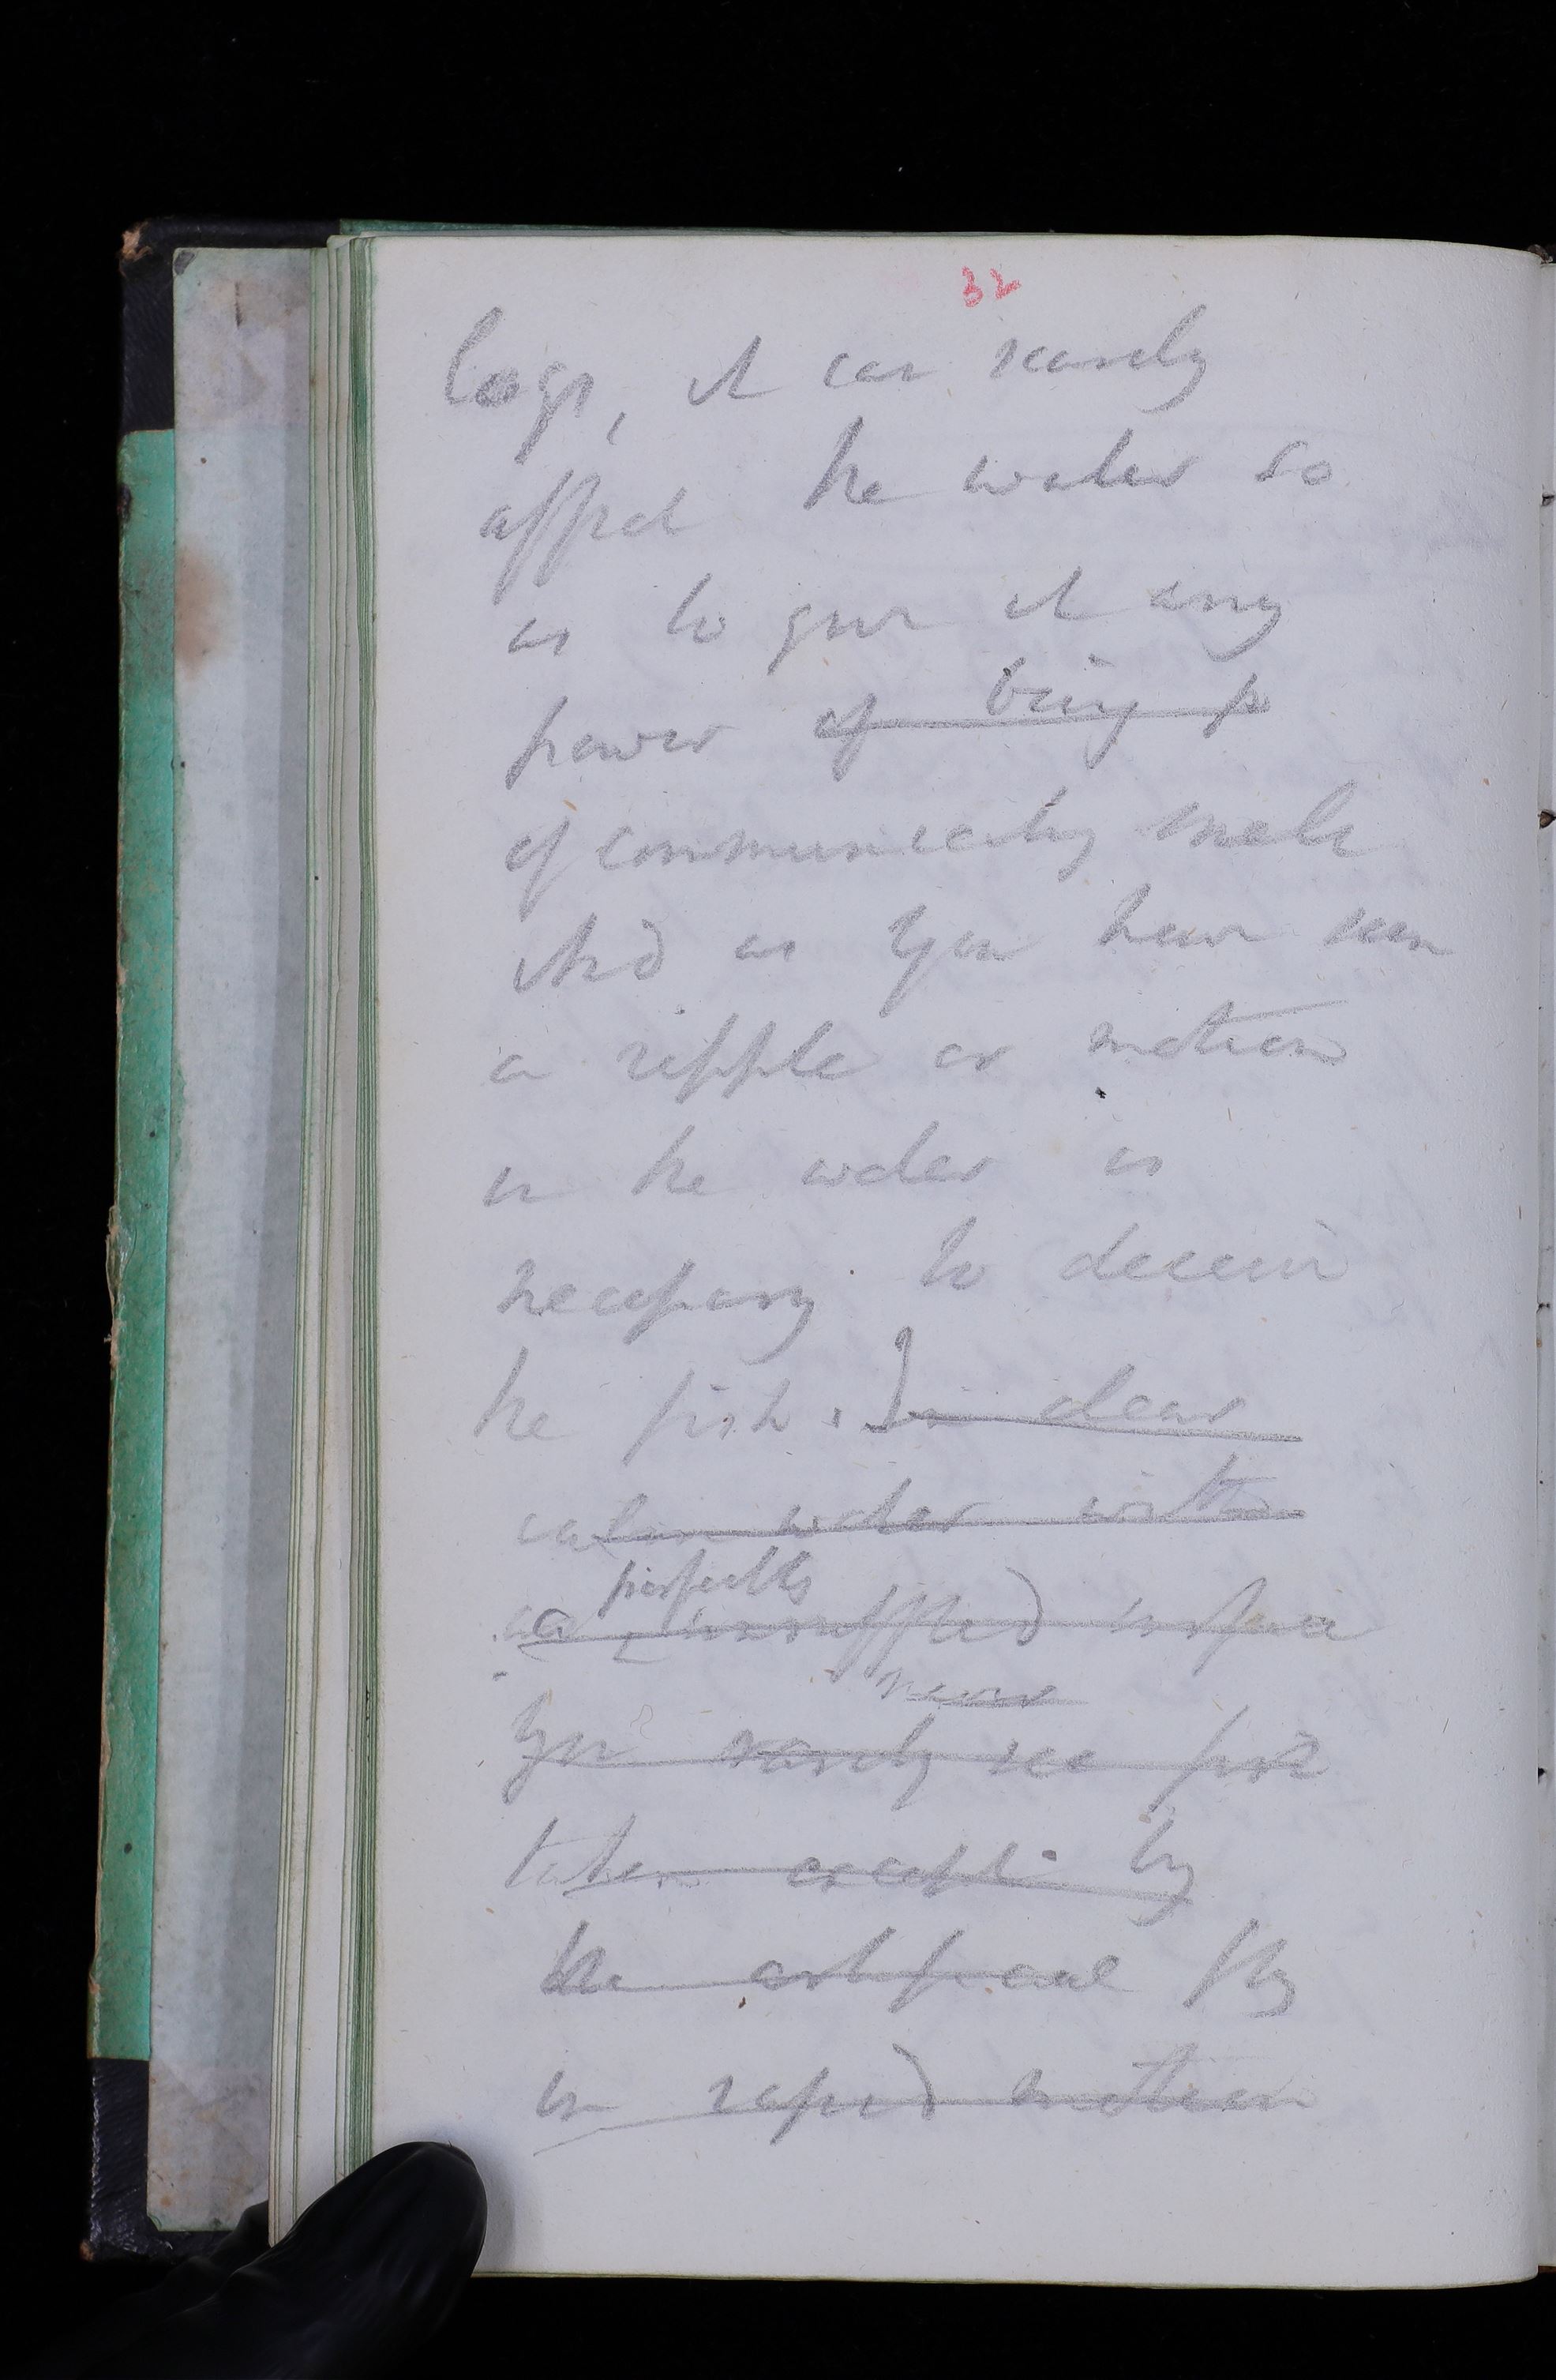 32
bogs, it can rarely
affect the water so
as to give it any
power of being p
of communicating smell
And as you have seen
a ripple or motion
in the water is
necessary to deceive
the fish. In clear
calm water with
a perfectly unruffled surface
never
You rarely see fish
taken except by
the artificial fly
in rapid motion